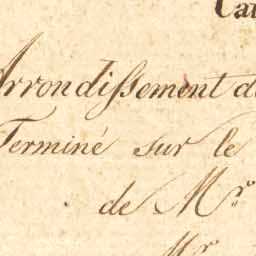 Ca
Arrondissement d
Terminé sur le
de Mr.
Mr.